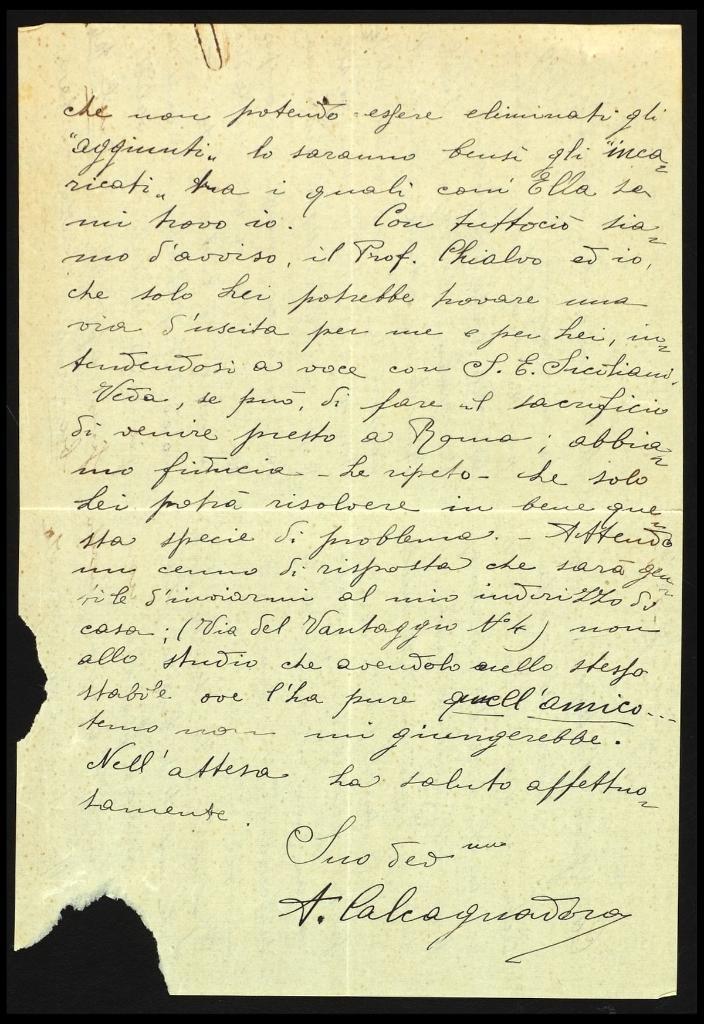 che non potendo essere eliminati gli
"aggiunti„ lo saranno bensì gli "inca=
ricati„ tra i quali com'Ella sa
mi trovo io. Con tuttociò sia=
mo d'avviso, il Prof. Chialvo ed io,
che solo Lei potrebbe trovare una
via d'uscita per me e per Lei, in=
tendendosi a voce con S. E. Siciliani.
Veda, se può, di fare il sacrificio
di venire presto a Roma; abbia=
mo fiducia - Le ripeto - che solo
Lei potrà risolvere in bene que=
sta specie di problema. - Attendo
un cenno di risposta che sarà gen=
tile d'inviarmi al mio indirizzo di
casa; (Via del Vantaggio N° 4) non
allo studio che avendolo nello stesso
stabile ove l'ha pure quell'amico...
temo non mi giungerebbe.
Nell'attesa La saluto affettuo=
samente.
Suo dev mo
A. Calcagnadoro